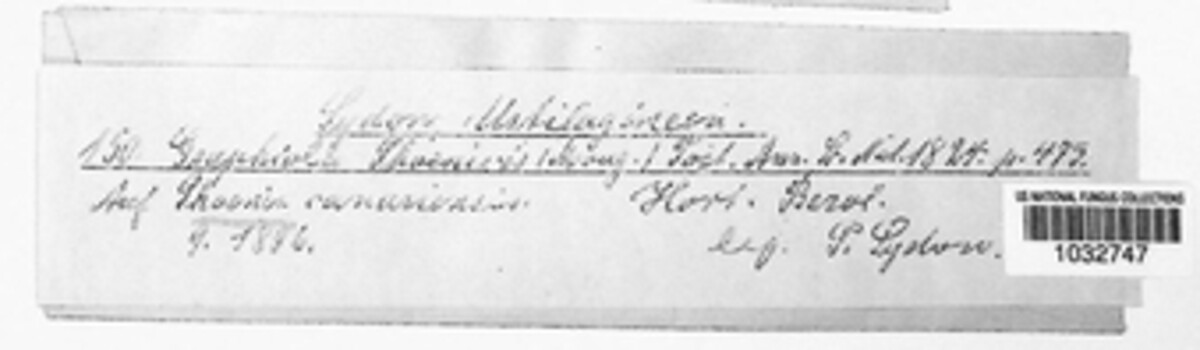 Sydow, Ustilagineen.
150 Graphiola Phoenicis (Moug.) Poit. Ann. Sc. Nat. 1824. p. 473.
Auf Phoenix canariensis. Hort. Berol.
9. 1896. leg. P. Sydow.
US NATIONAL FUNGUS COLLECTIONS
1032747